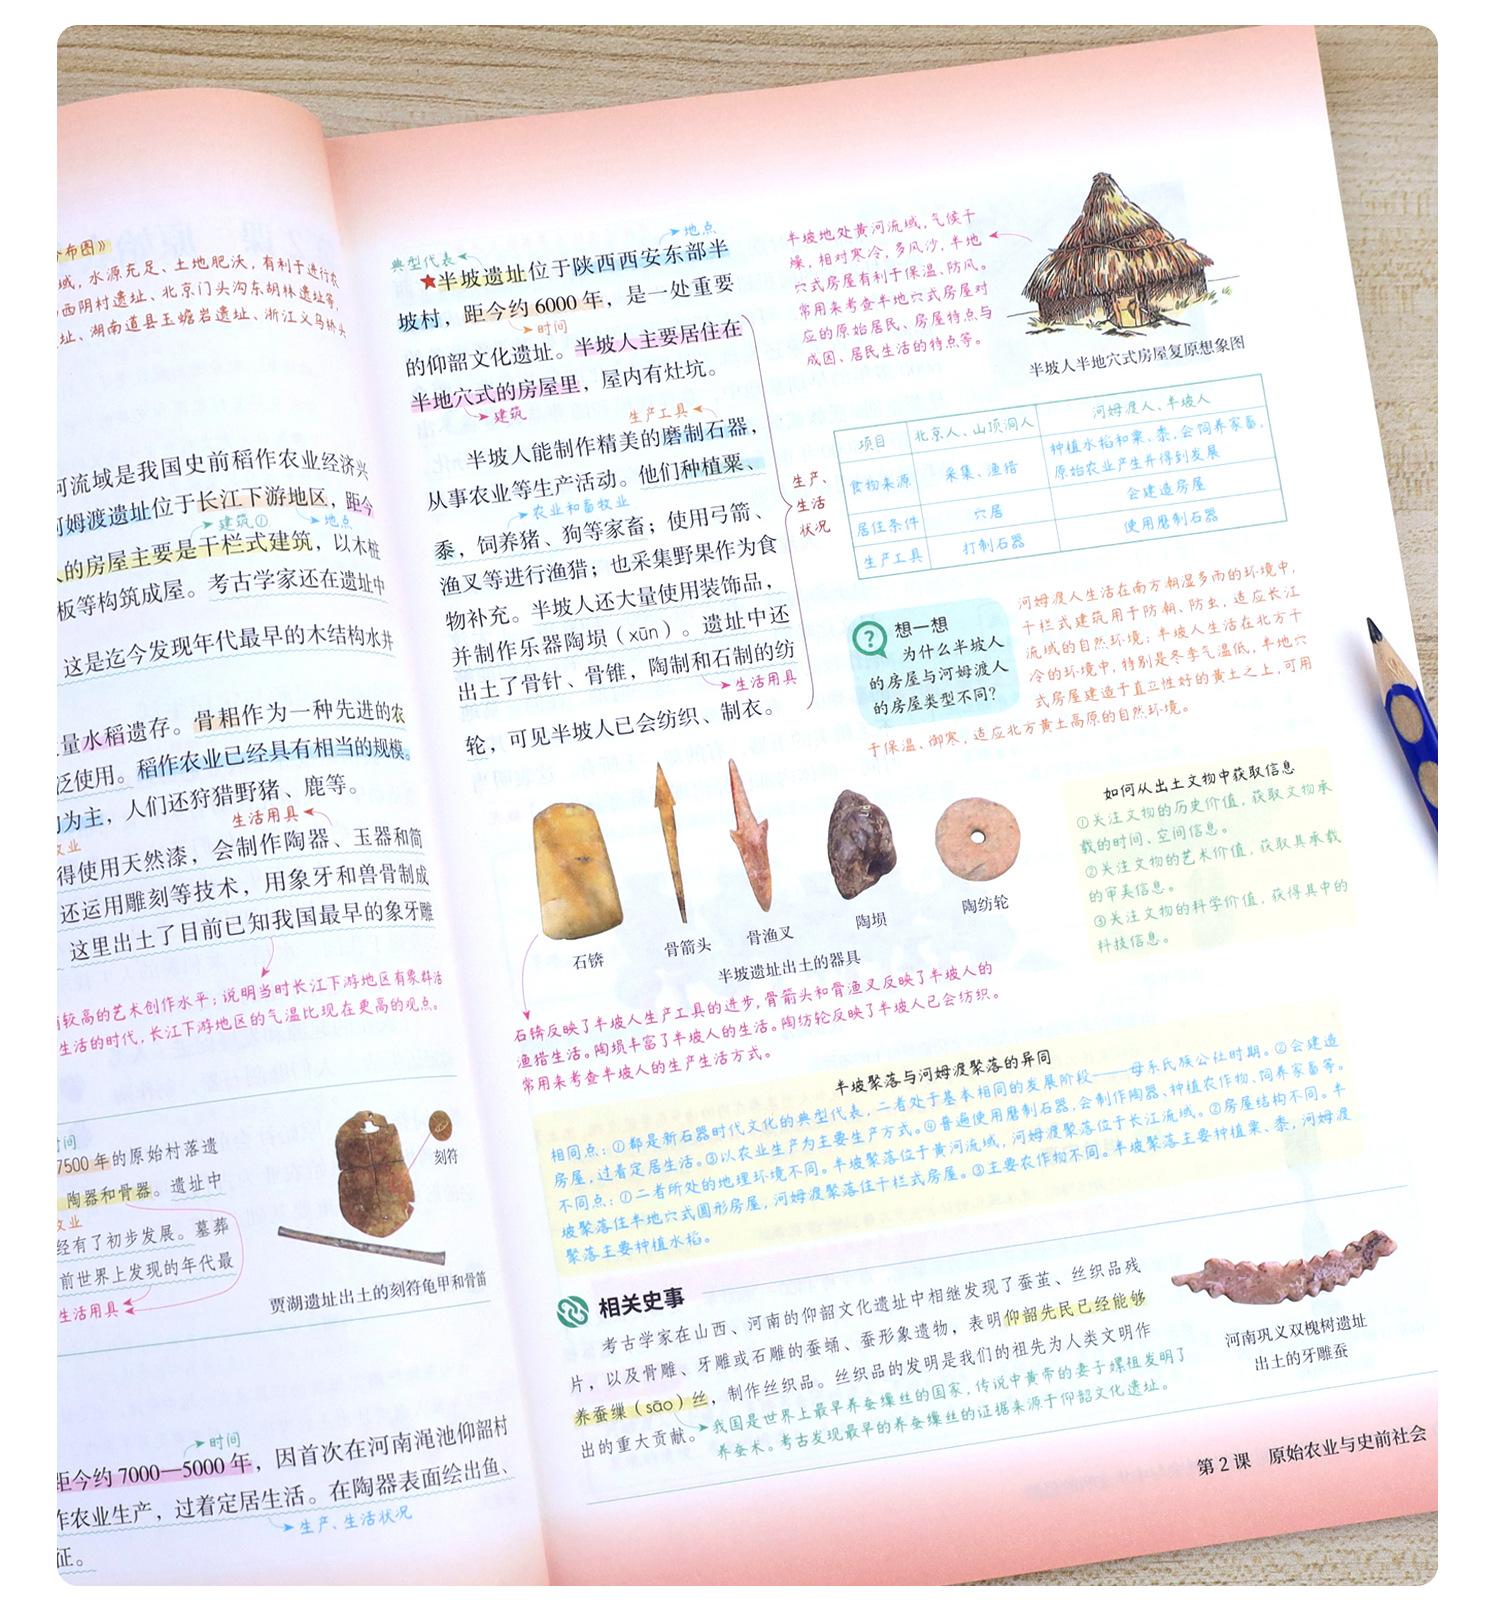 分布图》
域，水源充足、土地肥沃，有利于进行农
西阴村遗址、北京门头沟东胡林遗址等，
址、湖南道县玉蟾岩遗址、浙江义乌桥头
河流域是我国史前稻作农业经济兴
河姆渡遗址位于长江下游地区，距今
建筑① 地点
人的房屋主要是干栏式建筑，以木桩
板等构筑成屋。考古学家还在遗址中
这是迄今发现年代最早的木结构水井
量水稻遗存。骨耜作为一种先进的农
泛使用。稻作农业已经具有相当的规模。
为主，人们还狩猎野猪、鹿等。
生活用具
牧业
得使用天然漆，会制作陶器、玉器和简
还运用雕刻等技术，用象牙和兽骨制成
这里出土了目前已知我国最早的象牙雕
有较高的艺术创作水平；说明当时长江下游地区有象群活
生活的时代，长江下游地区的气温比现在更高的观点。
时间
7500 年的原始村落遗
陶器和骨器。遗址中
牧业
经有了初步发展。墓葬
前世界上发现的年代最
生活用具
刻符
贾湖遗址出土的刻符龟甲和骨笛
时间
距今约 7000—5000 年，因首次在河南渑池仰韶村
作农业生产，过着定居生活。在陶器表面绘出鱼、
生产、生活状况
征。
典型代表
地点
★半坡遗址位于陕西西安东部半
坡村，距今约 6000 年，是一处重要
时间
的仰韶文化遗址。半坡人主要居住在
半地穴式的房屋里，屋内有灶坑。
建筑
生产工具
半坡人能制作精美的磨制石器，
从事农业等生产活动。他们种植粟、
农业和畜牧业
黍，饲养猪、狗等家畜；使用弓箭、
渔叉等进行渔猎；也采集野果作为食
物补充。半坡人还大量使用装饰品，
并制作乐器陶埙（xūn）。遗址中还
出土了骨针、骨锥，陶制和石制的纺
生活用具
轮，可见半坡人已会纺织、制衣。
生产、
生活
状况
半坡地处黄河流域，气候干
燥，相对寒冷，多风沙，半地
穴式房屋有利于保温、防风。
常用来考查半地穴式房屋对
应的原始居民、房屋特点与
成因、居民生活的特点等。
半坡人半地穴式房屋复原想象图
项目 北京人、山顶洞人 河姆渡人、半坡人
食物来源 采集、渔猎 种植水稻和粟、黍，会饲养家畜，
原始农业产生并得到发展
居住条件 穴居 会建造房屋
生产工具 打制石器 使用磨制石器
想一想
为什么半坡人
的房屋与河姆渡人
的房屋类型不同？
河姆渡人生活在南方潮湿多雨的环境中，
干栏式建筑用于防潮、防虫，适应长江
流域的自然环境；半坡人生活在北方干
冷的环境中，特别是冬季气温低，半地穴
式房屋建造于直立性好的黄土之上，可用
于保温、御寒，适应北方黄土高原的自然环境。
石锛
骨箭头
骨渔叉
陶埙
陶纺轮
半坡遗址出土的器具
石锛反映了半坡人生产工具的进步，骨箭头和骨渔叉反映了半坡人的
渔猎生活。陶埙丰富了半坡人的生活。陶纺轮反映了半坡人已会纺织。
常用来考查半坡人的生产生活方式。
如何从出土文物中获取信息
①关注文物的历史价值，获取文物承
载的时间、空间信息。
②关注文物的艺术价值，获取其承载
的审美信息。
③关注文物的科学价值，获得其中的
科技信息。
半坡聚落与河姆渡聚落的异同
相同点：①都是新石器时代文化的典型代表，二者处于基本相同的发展阶段——母系氏族公社时期。②会建造
房屋，过着定居生活。③以农业生产为主要生产方式。④普遍使用磨制石器，会制作陶器、种植农作物、饲养家畜等。
不同点：①二者所处的地理环境不同。半坡聚落位于黄河流域，河姆渡聚落位于长江流域。②房屋结构不同。半
坡聚落住半地穴式圆形房屋，河姆渡聚落住干栏式房屋。③主要农作物不同。半坡聚落主要种植粟、黍，河姆渡
聚落主要种植水稻。
相关史事
考古学家在山西、河南的仰韶文化遗址中相继发现了蚕茧、丝织品残
片，以及骨雕、牙雕或石雕的蚕蛹、蚕形象遗物，表明仰韶先民已经能够
养蚕缫（sāo）丝，制作丝织品。丝织品的发明是我们的祖先为人类文明作
出的重大贡献。
我国是世界上最早养蚕缫丝的国家，传说中黄帝的妻子嫘祖发明了
养蚕术。考古发现最早的养蚕缫丝的证据来源于仰韶文化遗址。
河南巩义双槐树遗址
出土的牙雕蚕
第 2 课 原始农业与史前社会